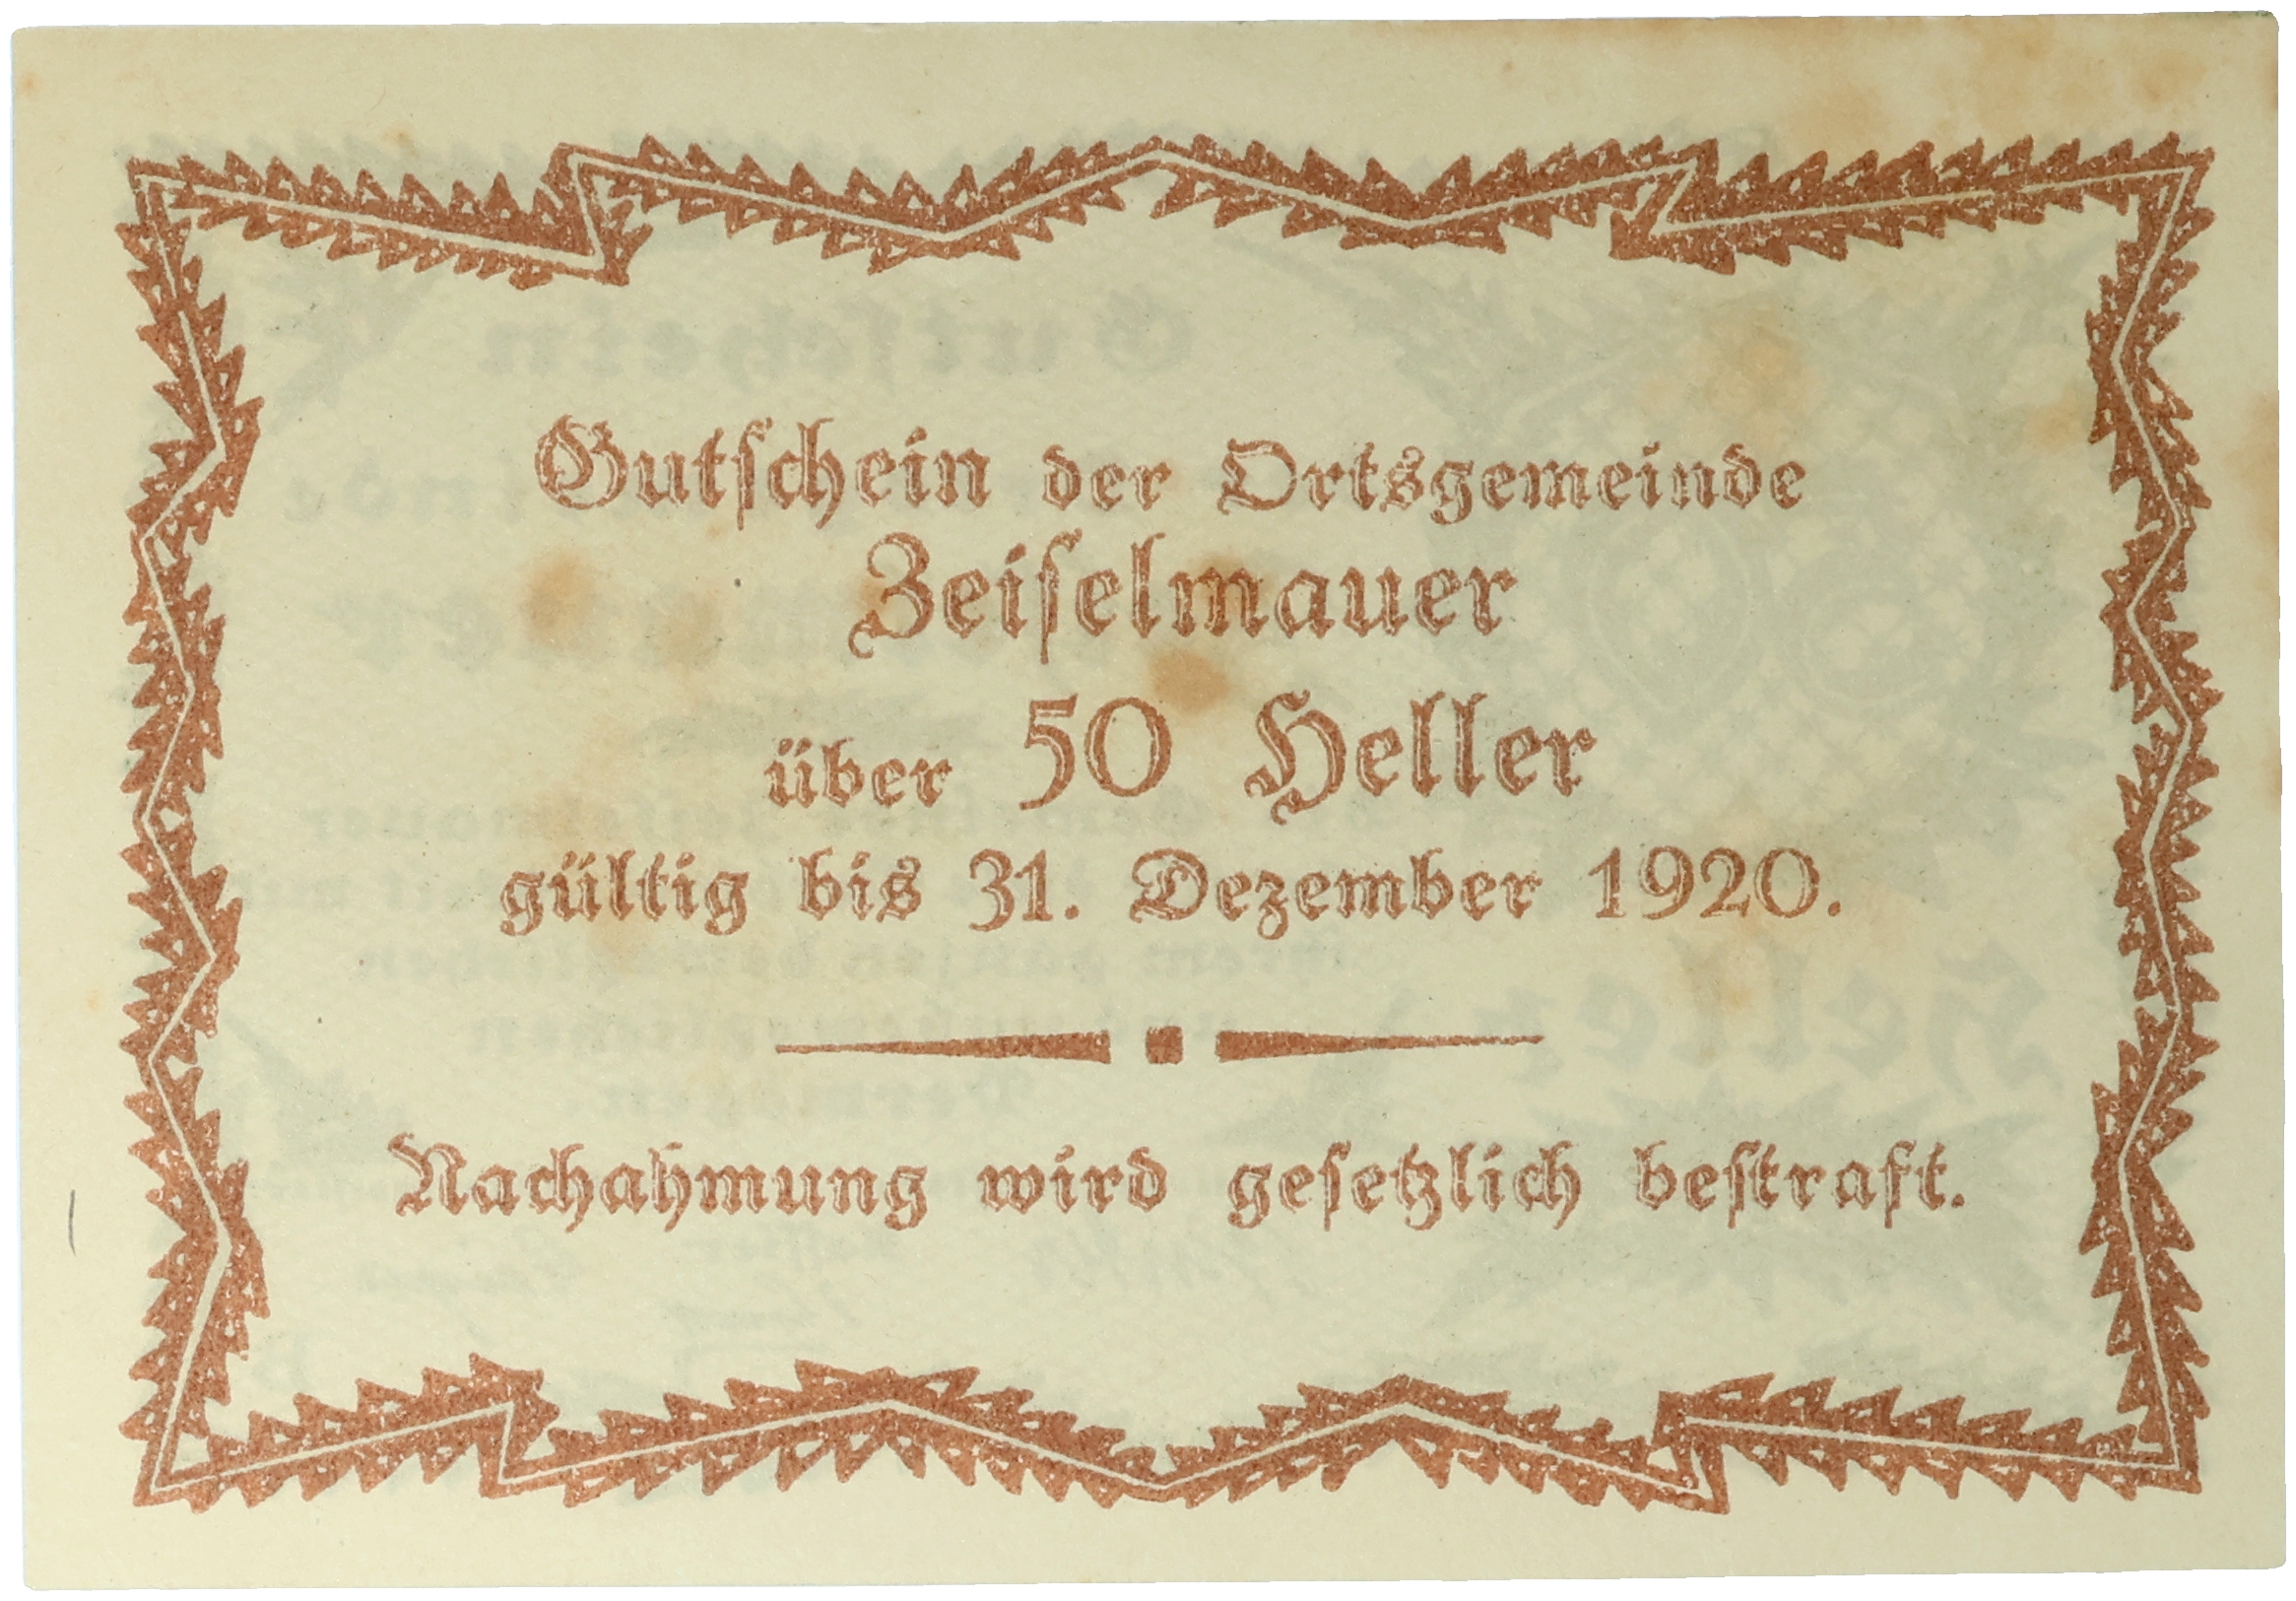 Gutschein der Ortsgemeinde
Zeiselmauer
über 50 Heller
gültig bis 31. Dezember 1920.
Nachahmung wird gesetzlich bestraft.